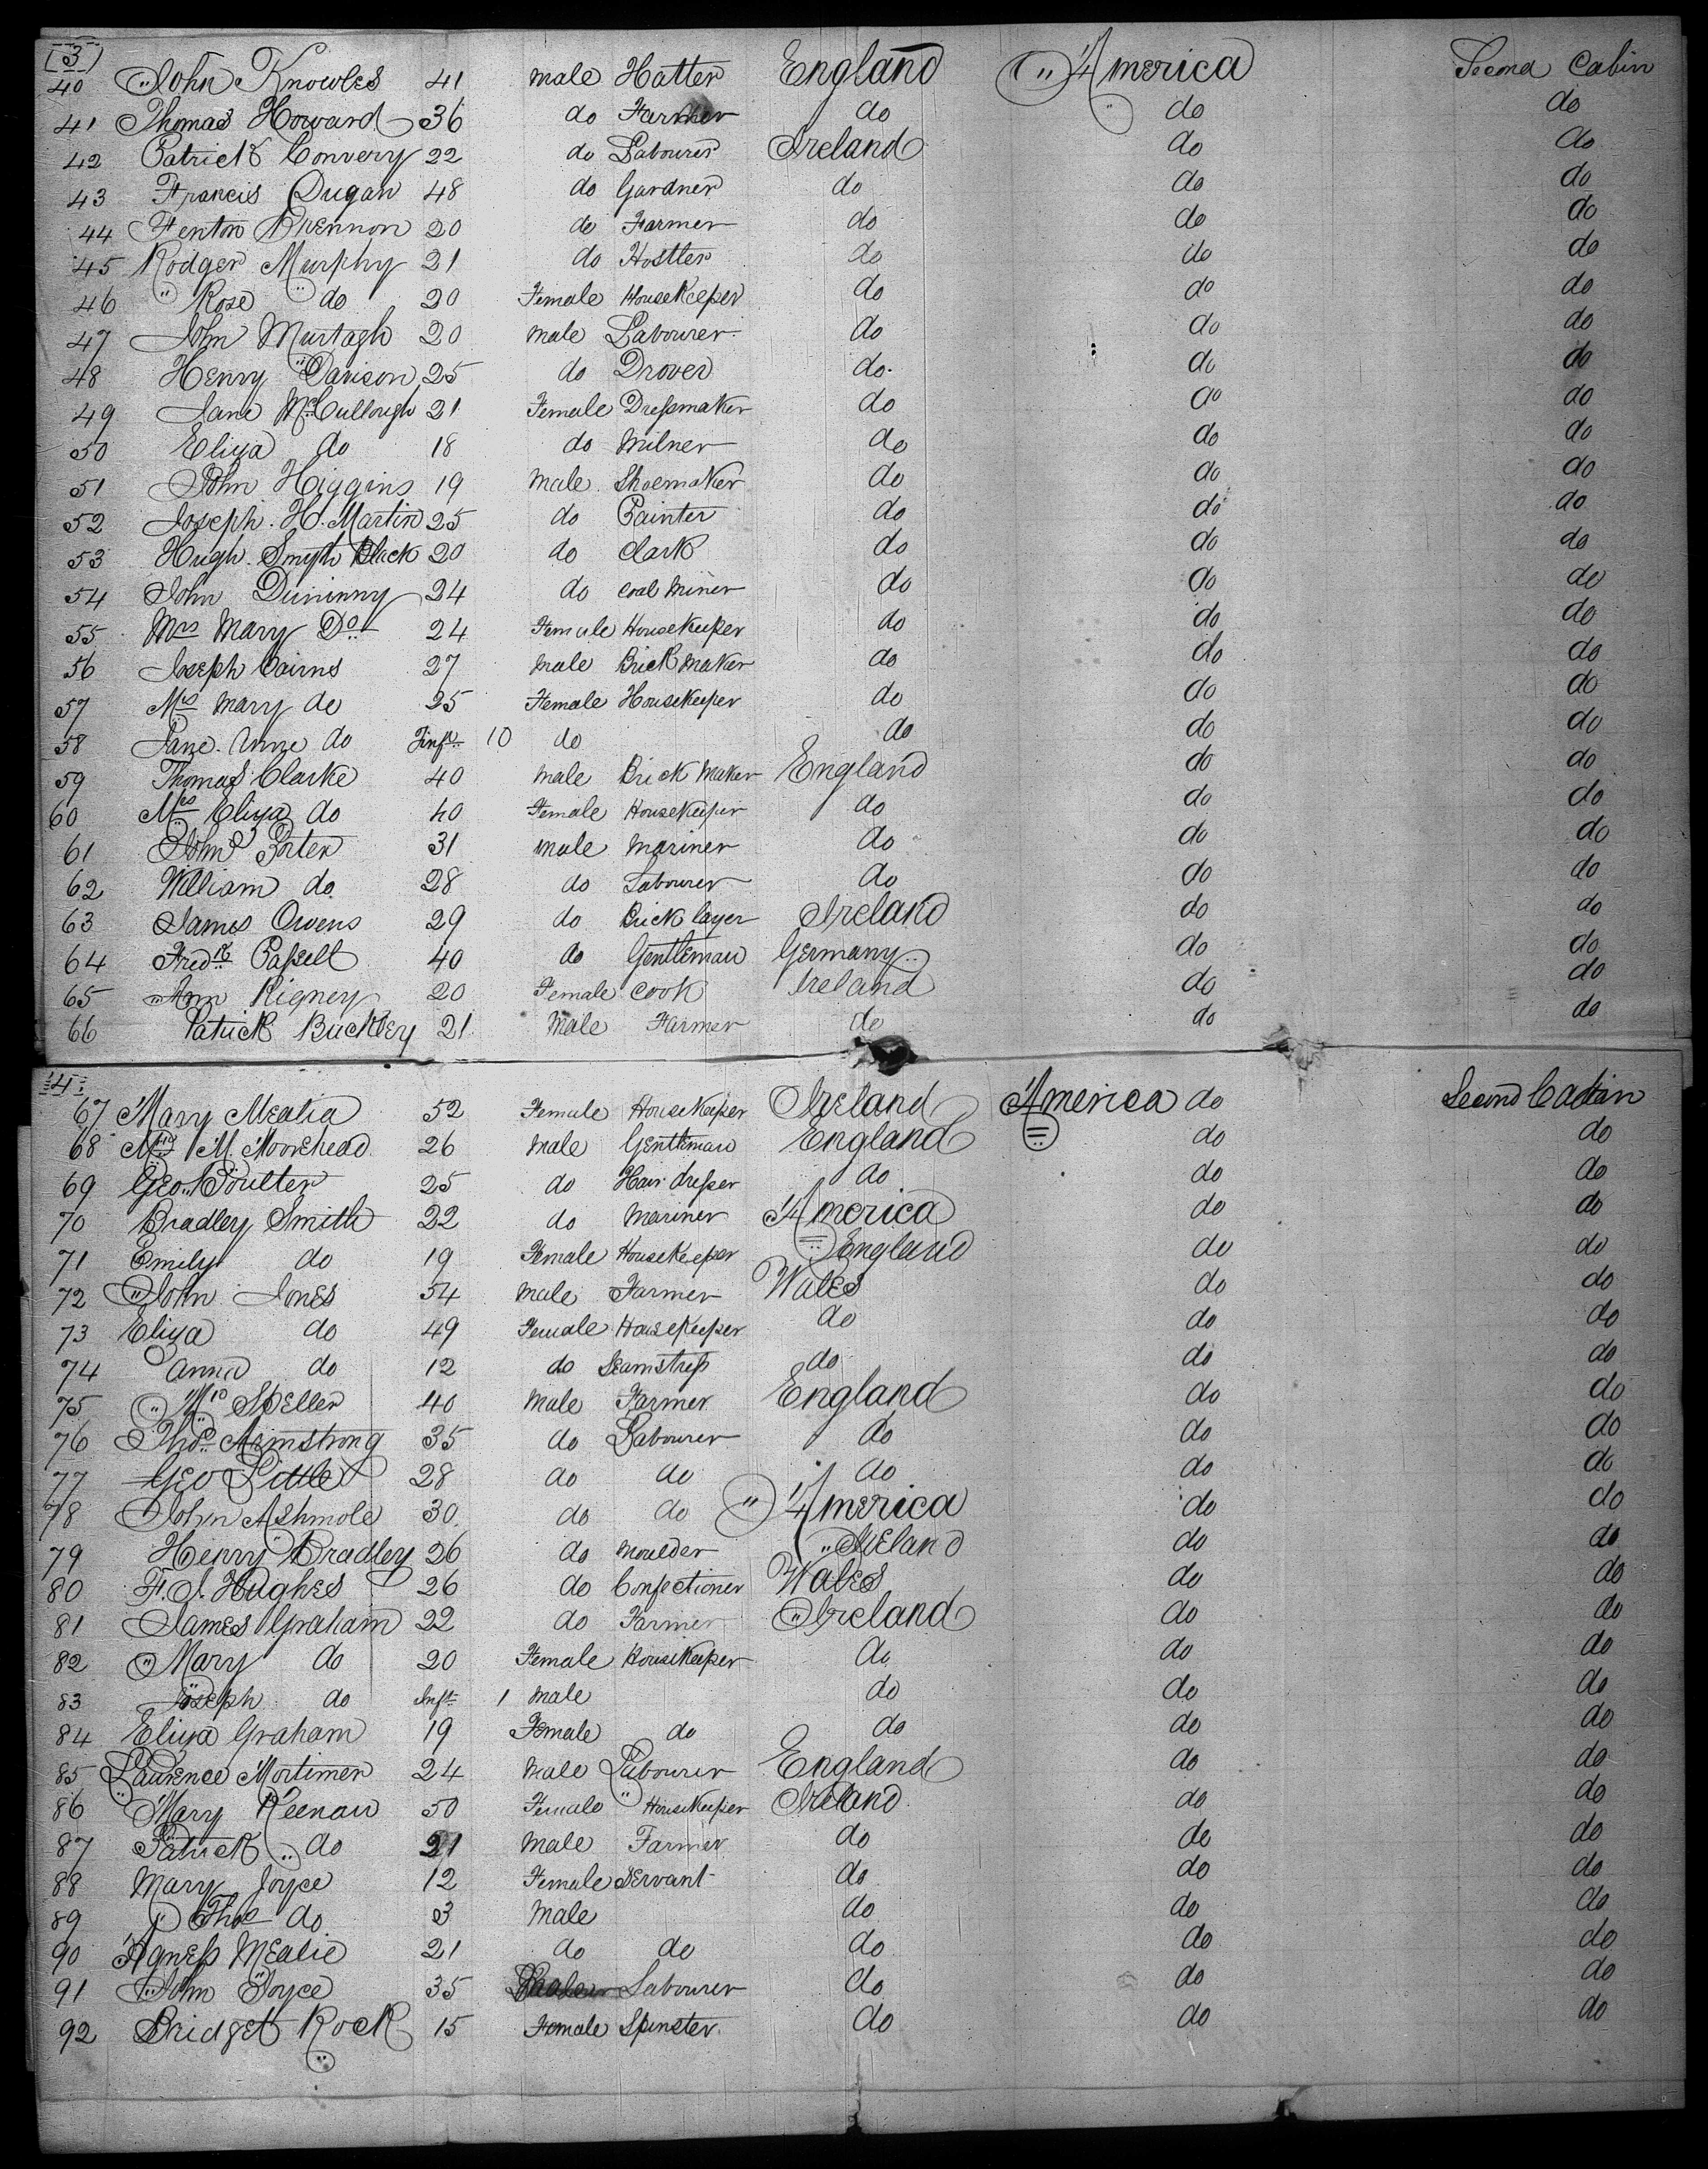 (3)
40 John Knowles 41 male Hatter England America Second Cabin
41 Thomas Howard 36 do Farmer do do do
42 Patrick Convery 22 do Labourer Ireland do do
43 Francis Dugan 48 do Gardner do do do
44 Fenton Brennon 20 do Farmer do do do
45 Rodger Murphy 21 do Hostler do do do
46 " Rose " do 20 Female Housekeeper do do do
47 John Murtagh 20 male Labourer do do do
48 Henry Davison 25 do Drover do. do do
49 Jane McCullough 21 Female Dressmaker do do do
50 Eliza do 18 do Milner do do do
51 John Higgins 19 male Shoemaker do do do
52 Joseph. H. Martin 25 do Painter do do do
53 Hugh. Smyth Black 20 do Clark do do do
54 John Duninny 24 do Coal Miner do do do
55 Mrs Mary Do 24 Female Housekeeper do do do
56 Joseph Cairns 27 male Brick Maker do do do
57 Mrs Mary do 25 Female Housekeeper do do do
58 Jane. Anne do Inft. 10 do do do do
59 Thomas Clarke 40 male Brick Maker England do do
60 Mrs Eliza do 40 Female Housekeeper do do do
61 John Porter 31 male Mariner do do do
62 William do 28 do Labourer do do do
63 James Owens 29 do Bricklayer Ireland do do
64 Fredk Passell 40 do Gentleman Germany do do
65 Ann Rigney 20 Female Cook Ireland do do
66 Patrick Buckley 21 Male Farmer do do do
4
67 Mary Mealia 52 Female Housekeeper Ireland America do Second Cabin
68 M. Moorehead 26 male Gentleman England do do
69 Geo. Poulter 25 do Hair dresser do do do
70 Bradley Smith 22 do Mariner America do do
71 Emily do 19 Female Housekeeper England do do
72 John Jones 54 male Farmer Wales do do
73 Eliza do 49 Female Housekeeper do do do
74 Anna do 12 do Seamstress do do do
75 Speller 40 male Farmer England do do
76 Thos. Armstrong 35 do Labourer do do do
77 Geo Little 28 do do do do do
78 John Ashmole 30 do do America do do
79 Henry Bradley 26 do Moulder Ireland do do
80 F. J. Hughes 26 do Confectioner Wales do do
81 James Graham 22 do Farmer Ireland do do
82 Mary do 20 Female Housekeeper do do do
83 Joseph do Inft. 1 male do do do
84 Eliza Graham 19 Female do do do do
85 Laurence Mortimer 24 male Labourer England do do
86 Mary Keenan 50 Female Housekeeper Ireland do do
87 Patrick do 21 male Farmer do do do
88 Mary Joyce 12 Female Servant do do do
89 Thos do 3 male do do do
90 Agness Mealie 21 do do do do do
91 John Joyce 35 Labourer do do do
92 Bridget Rock 15 Female Spinster do do do